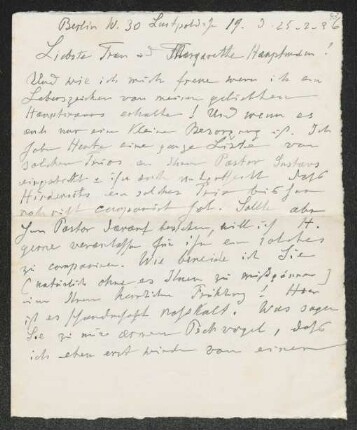 Berlin W. 30 Luitpoldstr. 19. D 25-2-26
Liebste Frau Margarethe Hauptmann!
Und wie ich mich freue wenn ich ein
Lebenszeichen von meinen geliebten
Hauptmanns erhalte! Und wenn es
auch nur eine kleine Besorgung ist. Ich
habe heute eine ganze Liste von
solchen Trios an Ihren Pastor
& ihr auch mitgeteilt, daß
Hindemith ein solches Trio bisher
noch nicht componirt hat. Sollte aber
Ihr Pastor darauf bestehen, will ich H.
gerne veranlassen für ihn ein solches
zu componieren. Wie beneide ich Sie
(natürlich ohne es Ihnen zu mißgönnen)
um Ihren herrlichen Frühling! Hier
ist es schandhaft naßkalt! Was sagen
Sie zu mir armen Pechvogel, daß
ich eben erst wieder von einem